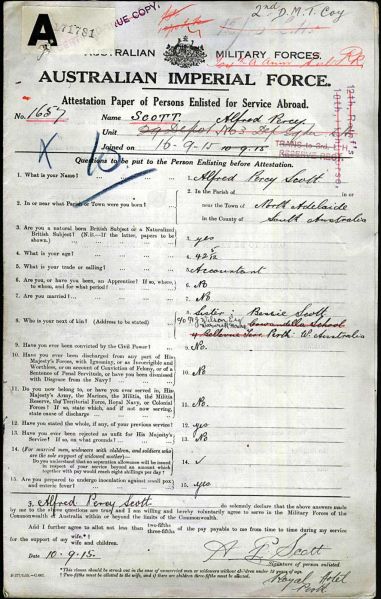 A
171781
TRUE COPY.
2nd D.M.T. Coy
AUSTRALIAN MILITARY FORCES.
AUSTRALIAN IMPERIAL FORCE.
Attestation Paper of Persons Enlisted for Service Abroad.
No. 1657 Name SCOTT Alfred Percy
Unit
Joined on 16-9-15 10.9.15
X 10
Questions to be put to the Person Enlisting before Attestation.
1. What is your Name? 1. Alfred Percy Scott
2. In or near what Parish or Town were you born? 2. In the Parish of
near the Town of North Adelaide
in the County of South Australia
3. Are you a natural born British Subject or a Naturalized
British Subject? (N.B.—If the latter, papers to be
shown.) 3. yes
4. What is your age? 4. 42 5/12
5. What is your trade or calling? 5. Accountant
6. Are you, or have you been, an Apprentice? If so, where,
to whom, and for what period? 6. No
7. Are you married? 7. No
8. Who is your next of kin? (Address to be stated) 8. Sister Bessie Scott
School
Perth W. Australia
9. Have you ever been convicted by the Civil Power? 9. No.
10. Have you ever been discharged from any part of His
Majesty's Forces, with Ignominy, or as Incorrigible and
Worthless, or on account of Conviction of Felony, or of a
Sentence of Penal Servitude, or have you been dismissed
with Disgrace from the Navy? 10. No
11. Do you now belong to, or have you ever served in, His
Majesty's Army, the Marines, the Militia, the Militia
Reserve, the Territorial Force, Royal Navy, or Colonial
Forces? If so, state which, and if not now serving,
state cause of discharge 11. No
12. Have you stated the whole, if any, of your previous service? 12. Yes
13. Have you ever been rejected as unfit for His Majesty's
Service? If so, on what grounds? 13. No
14. (For married men, widowers with children, and soldiers who
are the sole support of widowed mother—
Do you understand that no separation allowance will be issued
in respect of your service beyond an amount which
together with pay would reach eight shillings per day? 14. ✓
15. Are you prepared to undergo inoculation against small pox
and enteric fever? 15. yes
I, Alfred Percy Scott do solemnly declare that the above answers made
by me to the above questions are true, and I am willing and hereby voluntarily agree to serve in the Military Forces of the
Commonwealth of Australia within or beyond the limits of the Commonwealth.
And I further agree to allot not less than two-fifths three-fifths of the pay payable to me from time to time during my service
for the support of my wife.* wife and children.
Date 10.9.15. A P Scott
Signature of person enlisted.
Royal Hotel
Perth
* This clause should be struck out in the case of unmarried men or widowers without children under 18 years of age.
† Two-fifths must be allotted to the wife, and if there are children three-fifths must be allotted.